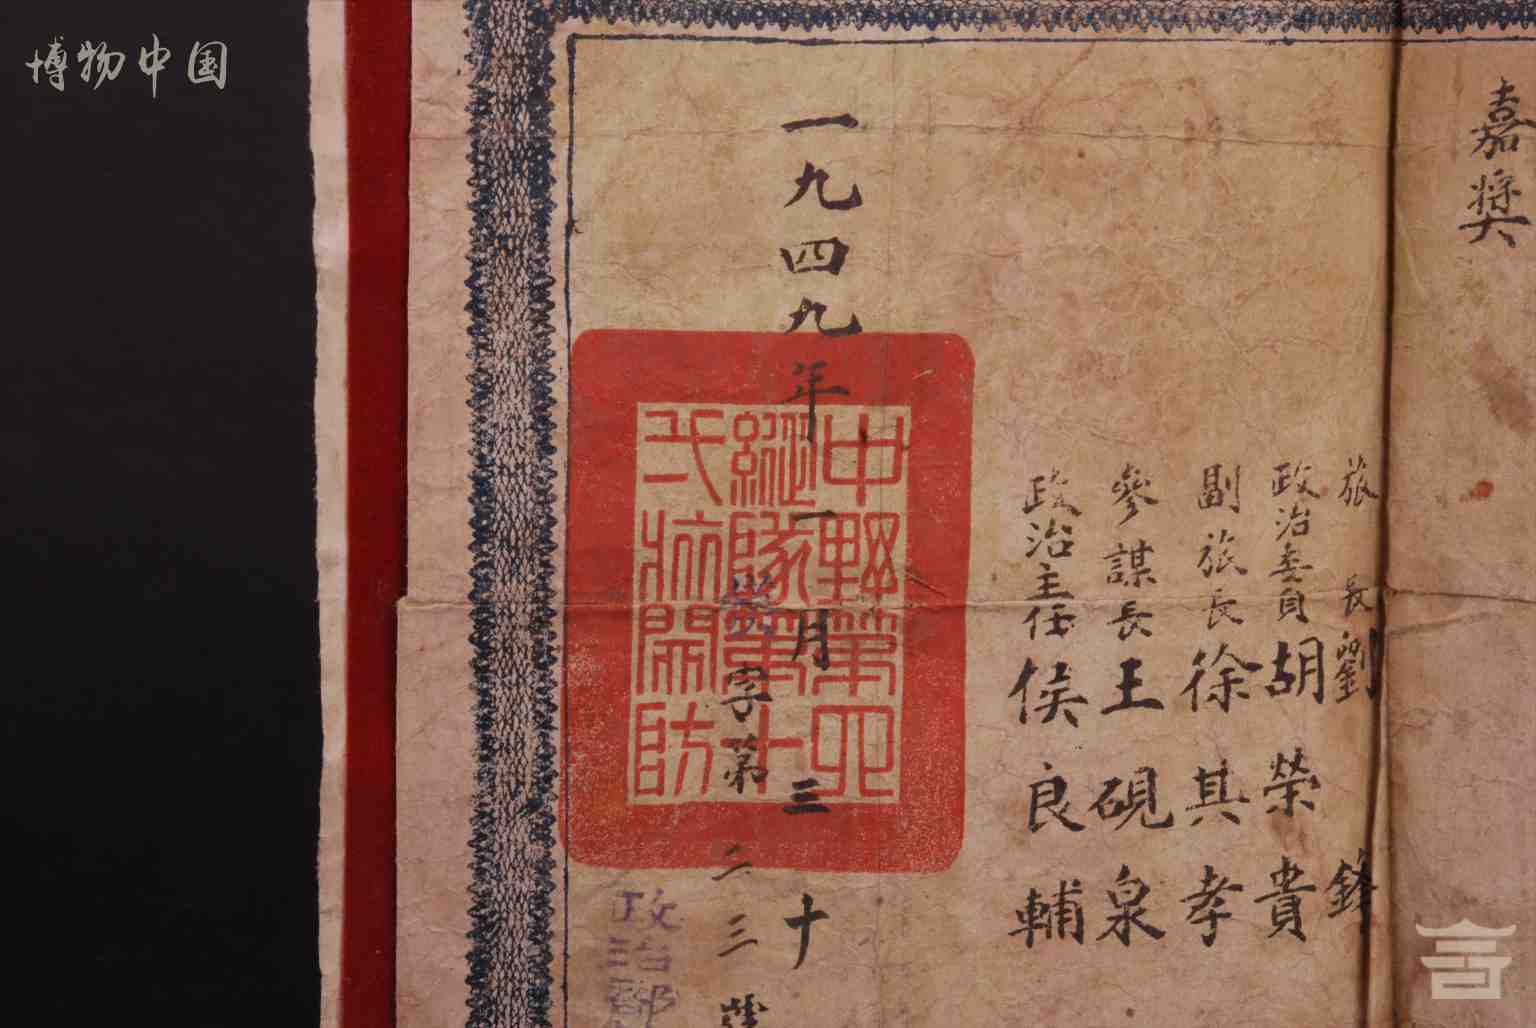 博物中国
嘉奨
旅 長 劉 鋒
政治委員 胡榮貴
副旅長 徐其孝
參謀長 王硯泉
政治主任 侯良輔
一九四九年一月三十
字第二三
中野第四
縱隊第十
弍旅關防
政治部